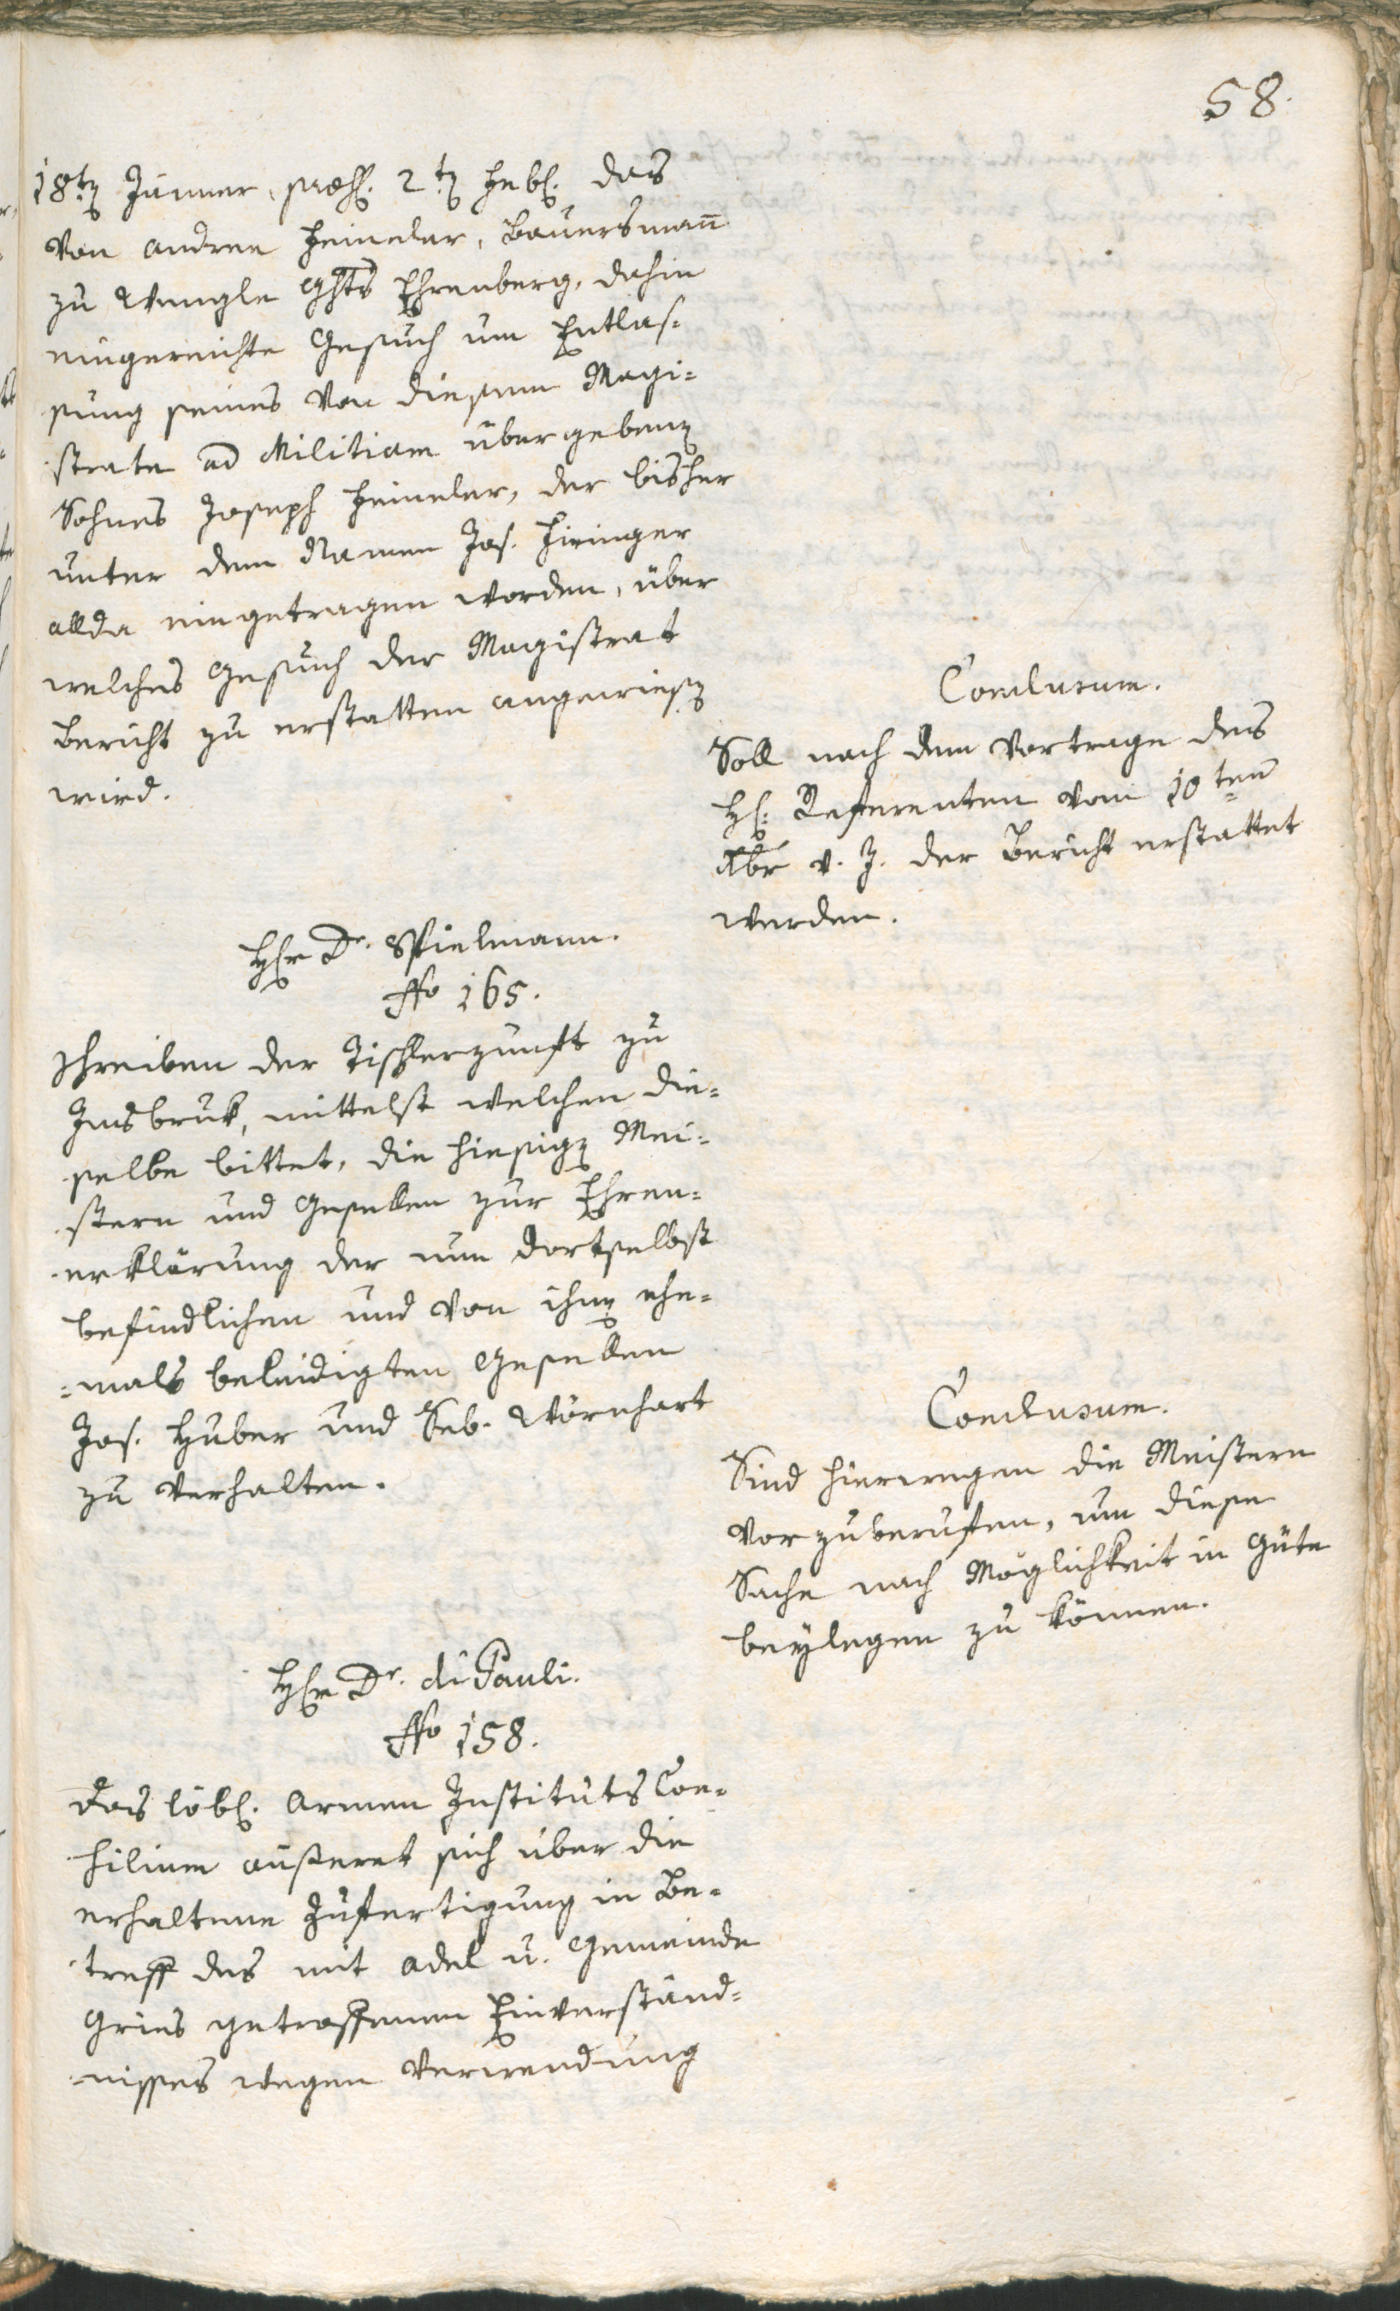 58.
18ten Jänner, praes. 2ten Febr. das
von Andree Heineler, Bauersmann
zu Wengle Ghts Ehrenberg, dahin
eingereichte Gesuch um Entlas-
sung seines von diesem Magi=
strate ad Militiam übergebenen
Sohnes Joseph Heineler, der bisher
unter dem Namen Jos. Hieinger
allda eingetragen worden, über
welches Gesuch der Magistrat
Bericht zu erstatten angewiesen
wird.
Conclusum.
Soll nach dem Vortrage des
H: Referenten vom 10ten
xbr v. J. der Bericht erstattet
werden.
Hr Dr. Spielmann.
No 165.
Schreiben der Tischlerzunft zu
Insbruk, mittelst welchen die=
selbe bittet, die hiesigen Mei=
stern und Gesellen zur Ehren=
erklärung der nun dortselbst
befindlichen und von ihnen ehe=
=mals beleidigten Gesellen
Jos. Huber und Seb. Wörnhart
zu verhalten.
Conclusum.
Sind hierwegen die Meistern
vorzuberuffen, um diese
Sache nach Möglichkeit in Güte
beylegen zu können.
Hr Dr. di Pauli.
No 158.
Das löbl. Armen Instituts Con-
silium äusseret sich über die
erhaltene Zufertigung in Be-
treff des mit Adel u. Gemeinde
Gries getroffenen Einverständ=
nisses wegen Verwendung